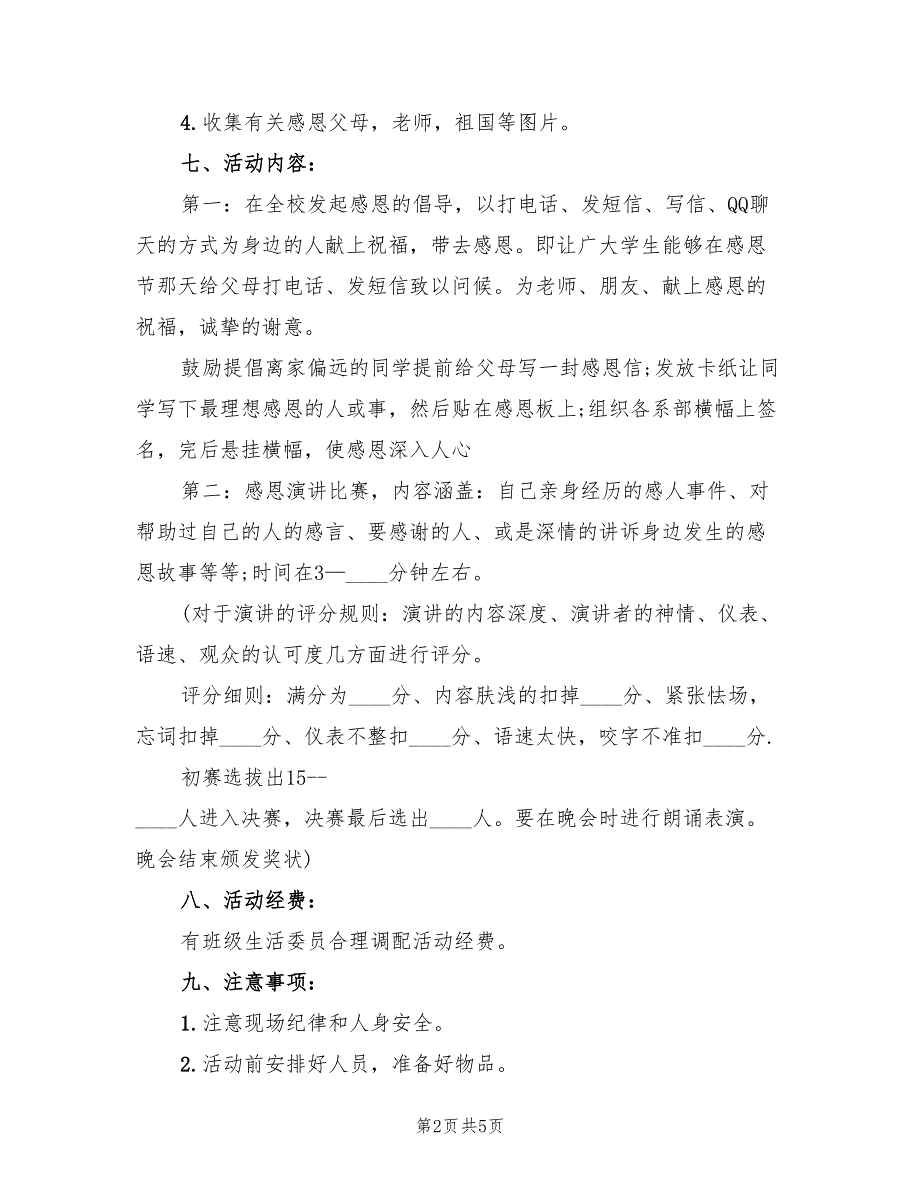 4.收集有关感恩父母，老师，祖国等图片。
七、活动内容：
第一：在全校发起感恩的倡导，以打电话、发短信、写信、QQ聊
天的方式为身边的人献上祝福，带去感恩。即让广大学生能够在感恩
节那天给父母打电话、发短信致以问候。为老师、朋友、献上感恩的
祝福，诚挚的谢意。
鼓励提倡离家偏远的同学提前给父母写一封感恩信;发放卡纸让同
学写下最理想感恩的人或事，然后贴在感恩板上;组织各系部横幅上签
名，完后悬挂横幅，使感恩深入人心
第二：感恩演讲比赛，内容涵盖：自己亲身经历的感人事件、对
帮助过自己的人的感言、要感谢的人、或是深情的讲诉身边发生的感
恩故事等等;时间在3—____分钟左右。
(对于演讲的评分规则：演讲的内容深度、演讲者的神情、仪表、
语速、观众的认可度几方面进行评分。
评分细则：满分为____分、内容肤浅的扣掉____分、紧张怯场，
忘词扣掉____分、仪表不整扣____分、语速太快，咬字不准扣____分.
初赛选拔出15--
____人进入决赛，决赛最后选出____人。要在晚会时进行朗诵表演。
晚会结束颁发奖状)
八、活动经费：
有班级生活委员合理调配活动经费。
九、注意事项：
1.注意现场纪律和人身安全。
2.活动前安排好人员，准备好物品。
第2页共5页